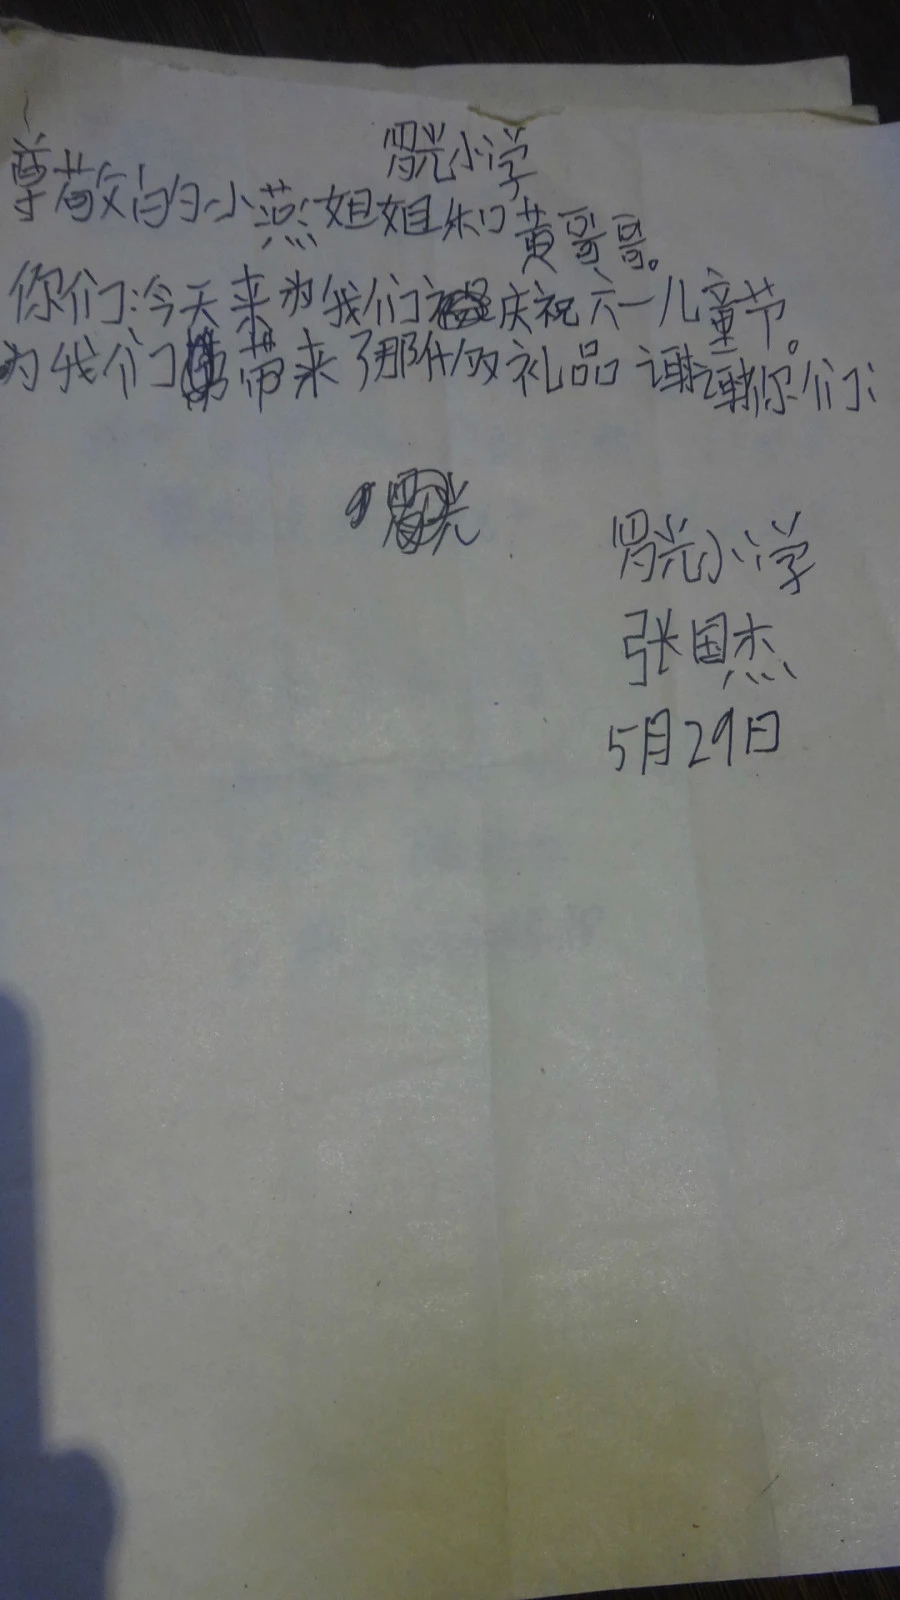 小学
尊敬的小燕姐姐和黄哥哥。
你们:今天来为我们庆祝六一儿童节。
为我们带来了那什么礼品谢谢你们:
光
光小学
张国杰
5月29日